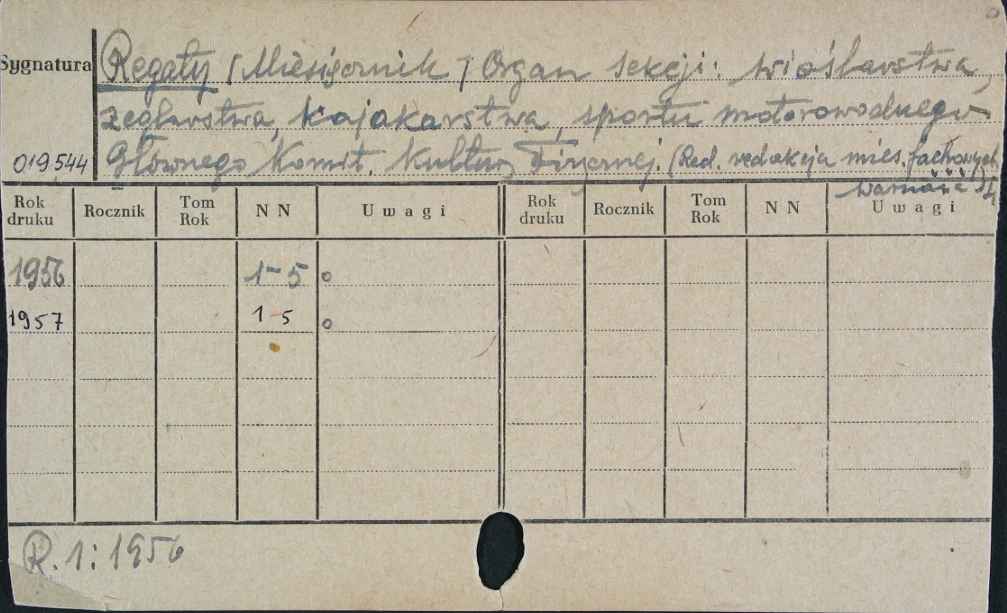 Sygnatura Regaty / Miesięcznik / Organ sekcji: wioślarstwa,
żeglarstwa, kajakarstwa, sportu motorowodnego
019,544 Głównego Komit. Kultury Fizycznej. (Red. redakcja mies. fachowych
Rok druku Rocznik Tom Rok N N Uwagi Rok druku Rocznik Tom Rok N N Uwagi
1956 1-5 o
1957 1-5 o
R. 1: 1956